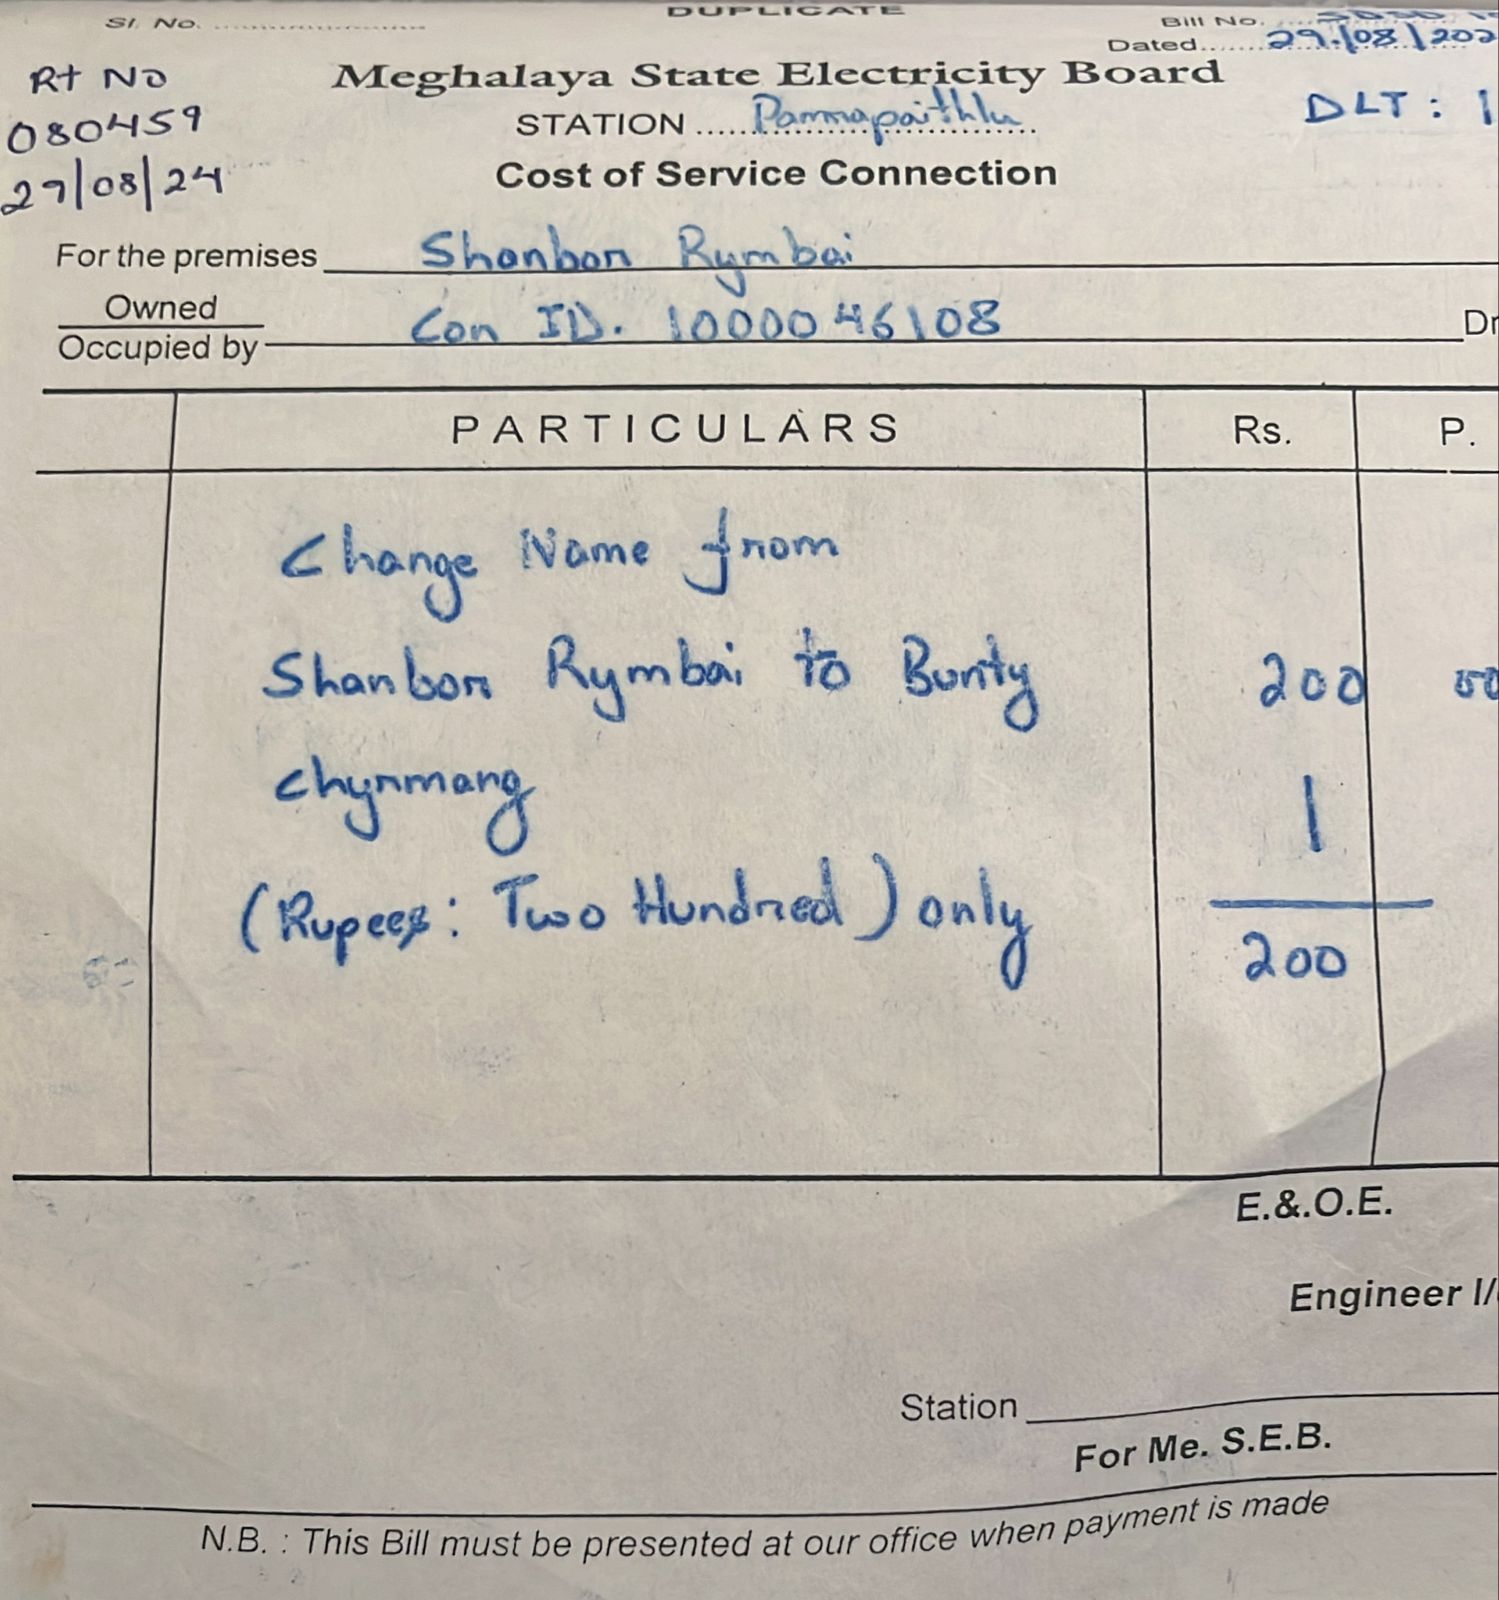 DUPLICATE
Sl. No. ..............................
Bill No.
Dated....... 29/08/202
Rt No
080459
29/08/24
Meghalaya State Electricity Board
STATION ..... Pammapaithlu
DLT : 1
Cost of Service Connection
For the premises Shanbor Rymbai
Owned
Occupied by Con ID. 1000046108 Dr
PARTICULARS Rs. P.
Change Name from
Shanbor Rymbai to Bunty 200 00
chynmang
(Rupees: Two Hundred) only
200
E.&.O.E.
Engineer I/
Station
For Me. S.E.B.
N.B. : This Bill must be presented at our office when payment is made